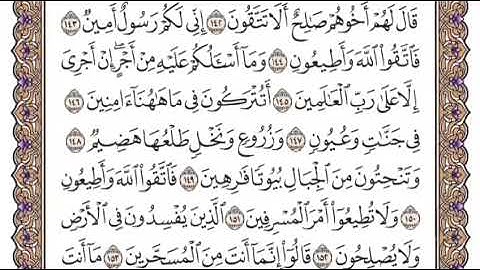 قَالَ لَهُمْ أَخُوهُمْ صَٰلِحٌ أَلَا تَتَّقُونَ ١٤٢ إِنِّي لَكُمْ رَسُولٌ أَمِينٌ ١٤٣
فَٱتَّقُوا۟ ٱللَّهَ وَأَطِيعُونِ ١٤٤ وَمَآ أَسْـَٔلُكُمْ عَلَيْهِ مِنْ أَجْرٍ إِنْ أَجْرِىَ
إِلَّا عَلَىٰ رَبِّ ٱلْعَٰلَمِينَ ١٤٥ أَتُتْرَكُونَ فِى مَا هَٰهُنَآ ءَامِنِينَ ١٤٦
فِى جَنَّٰتٍ وَعُيُونٍ ١٤٧ وَزُرُوعٍ وَنَخْلٍ طَلْعُهَا هَضِيمٌ ١٤٨
وَتَنْحِتُونَ مِنَ ٱلْجِبَالِ بُيُوتًا فَٰرِهِينَ ١٤٩ فَٱتَّقُوا۟ ٱللَّهَ وَأَطِيعُونِ
١٥٠ وَلَا تُطِيعُوٓا۟ أَمْرَ ٱلْمُسْرِفِينَ ١٥١ ٱلَّذِينَ يُفْسِدُونَ فِى ٱلْأَرْضِ
وَلَا يُصْلِحُونَ ١٥٢ قَالُوٓا۟ إِنَّمَآ أَنتَ مِنَ ٱلْمُسَحَّرِينَ ١٥٣ مَآ أَنتَ